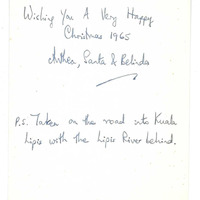 Wishing You A Very Happy
Christmas 1965
Anthea, Santa & Belinda
P.S. Taken on the road into Kuala
Lipis with the Lipis River behind.